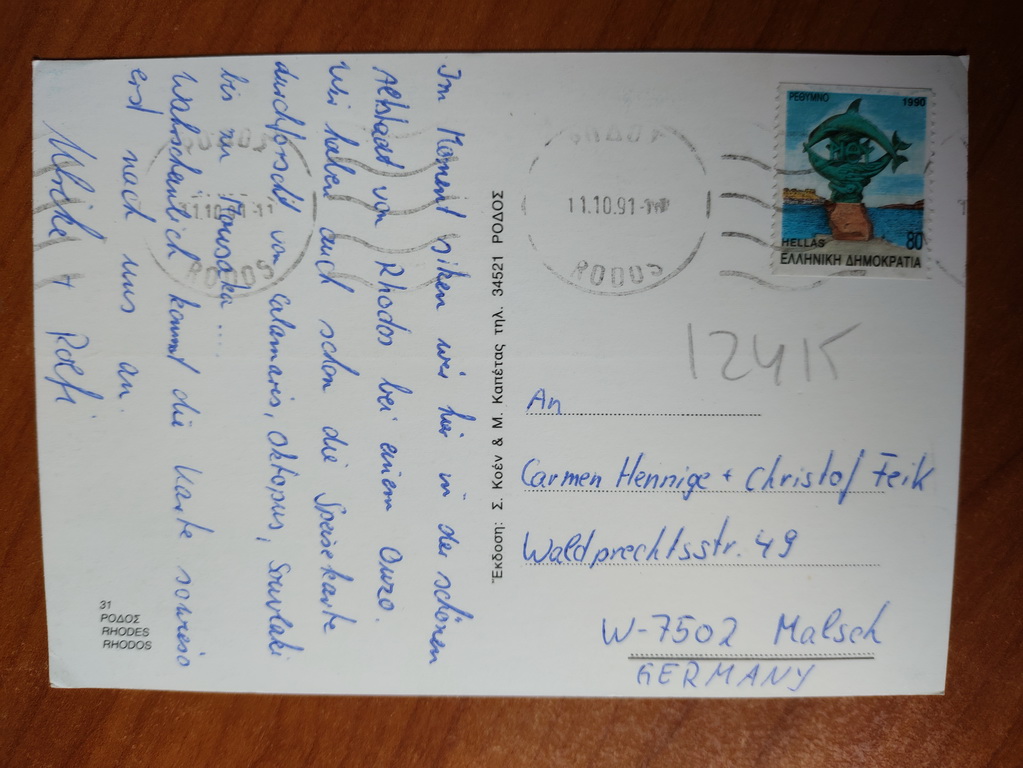 Im Moment sitzen wir hier in der schönen
Altstadt von Rhodos bei einem Ouzo.
Wir haben auch schon die Speisekarte
durchforscht, von Calamaris, Oktopus, Souvlaki
bis zu ....
Wahrscheinlich kommt die Karte sowieso
erst nach uns an.
Ulrike + Rolfi
31
ΡΟΔΟΣ
RHODES
RHODOS
Έκδοση: Σ. Κοέν & Μ. Καπέτας τηλ. 34521 ΡΟΔΟΣ
ΡΟΔΟΣ
11.10.91-11
RODOS
ΡΟΔΟΣ
11.10.91
RODOS
ΡΕΘΥΜΝΟ 1990
HELLAS 80
ΕΛΛΗΝΙΚΗ ΔΗΜΟΚΡΑΤΙΑ
124K
An
Carmen Hennige + Christof Feik
Waldprechtsstr. 49
W-7502 Malsch
GERMANY